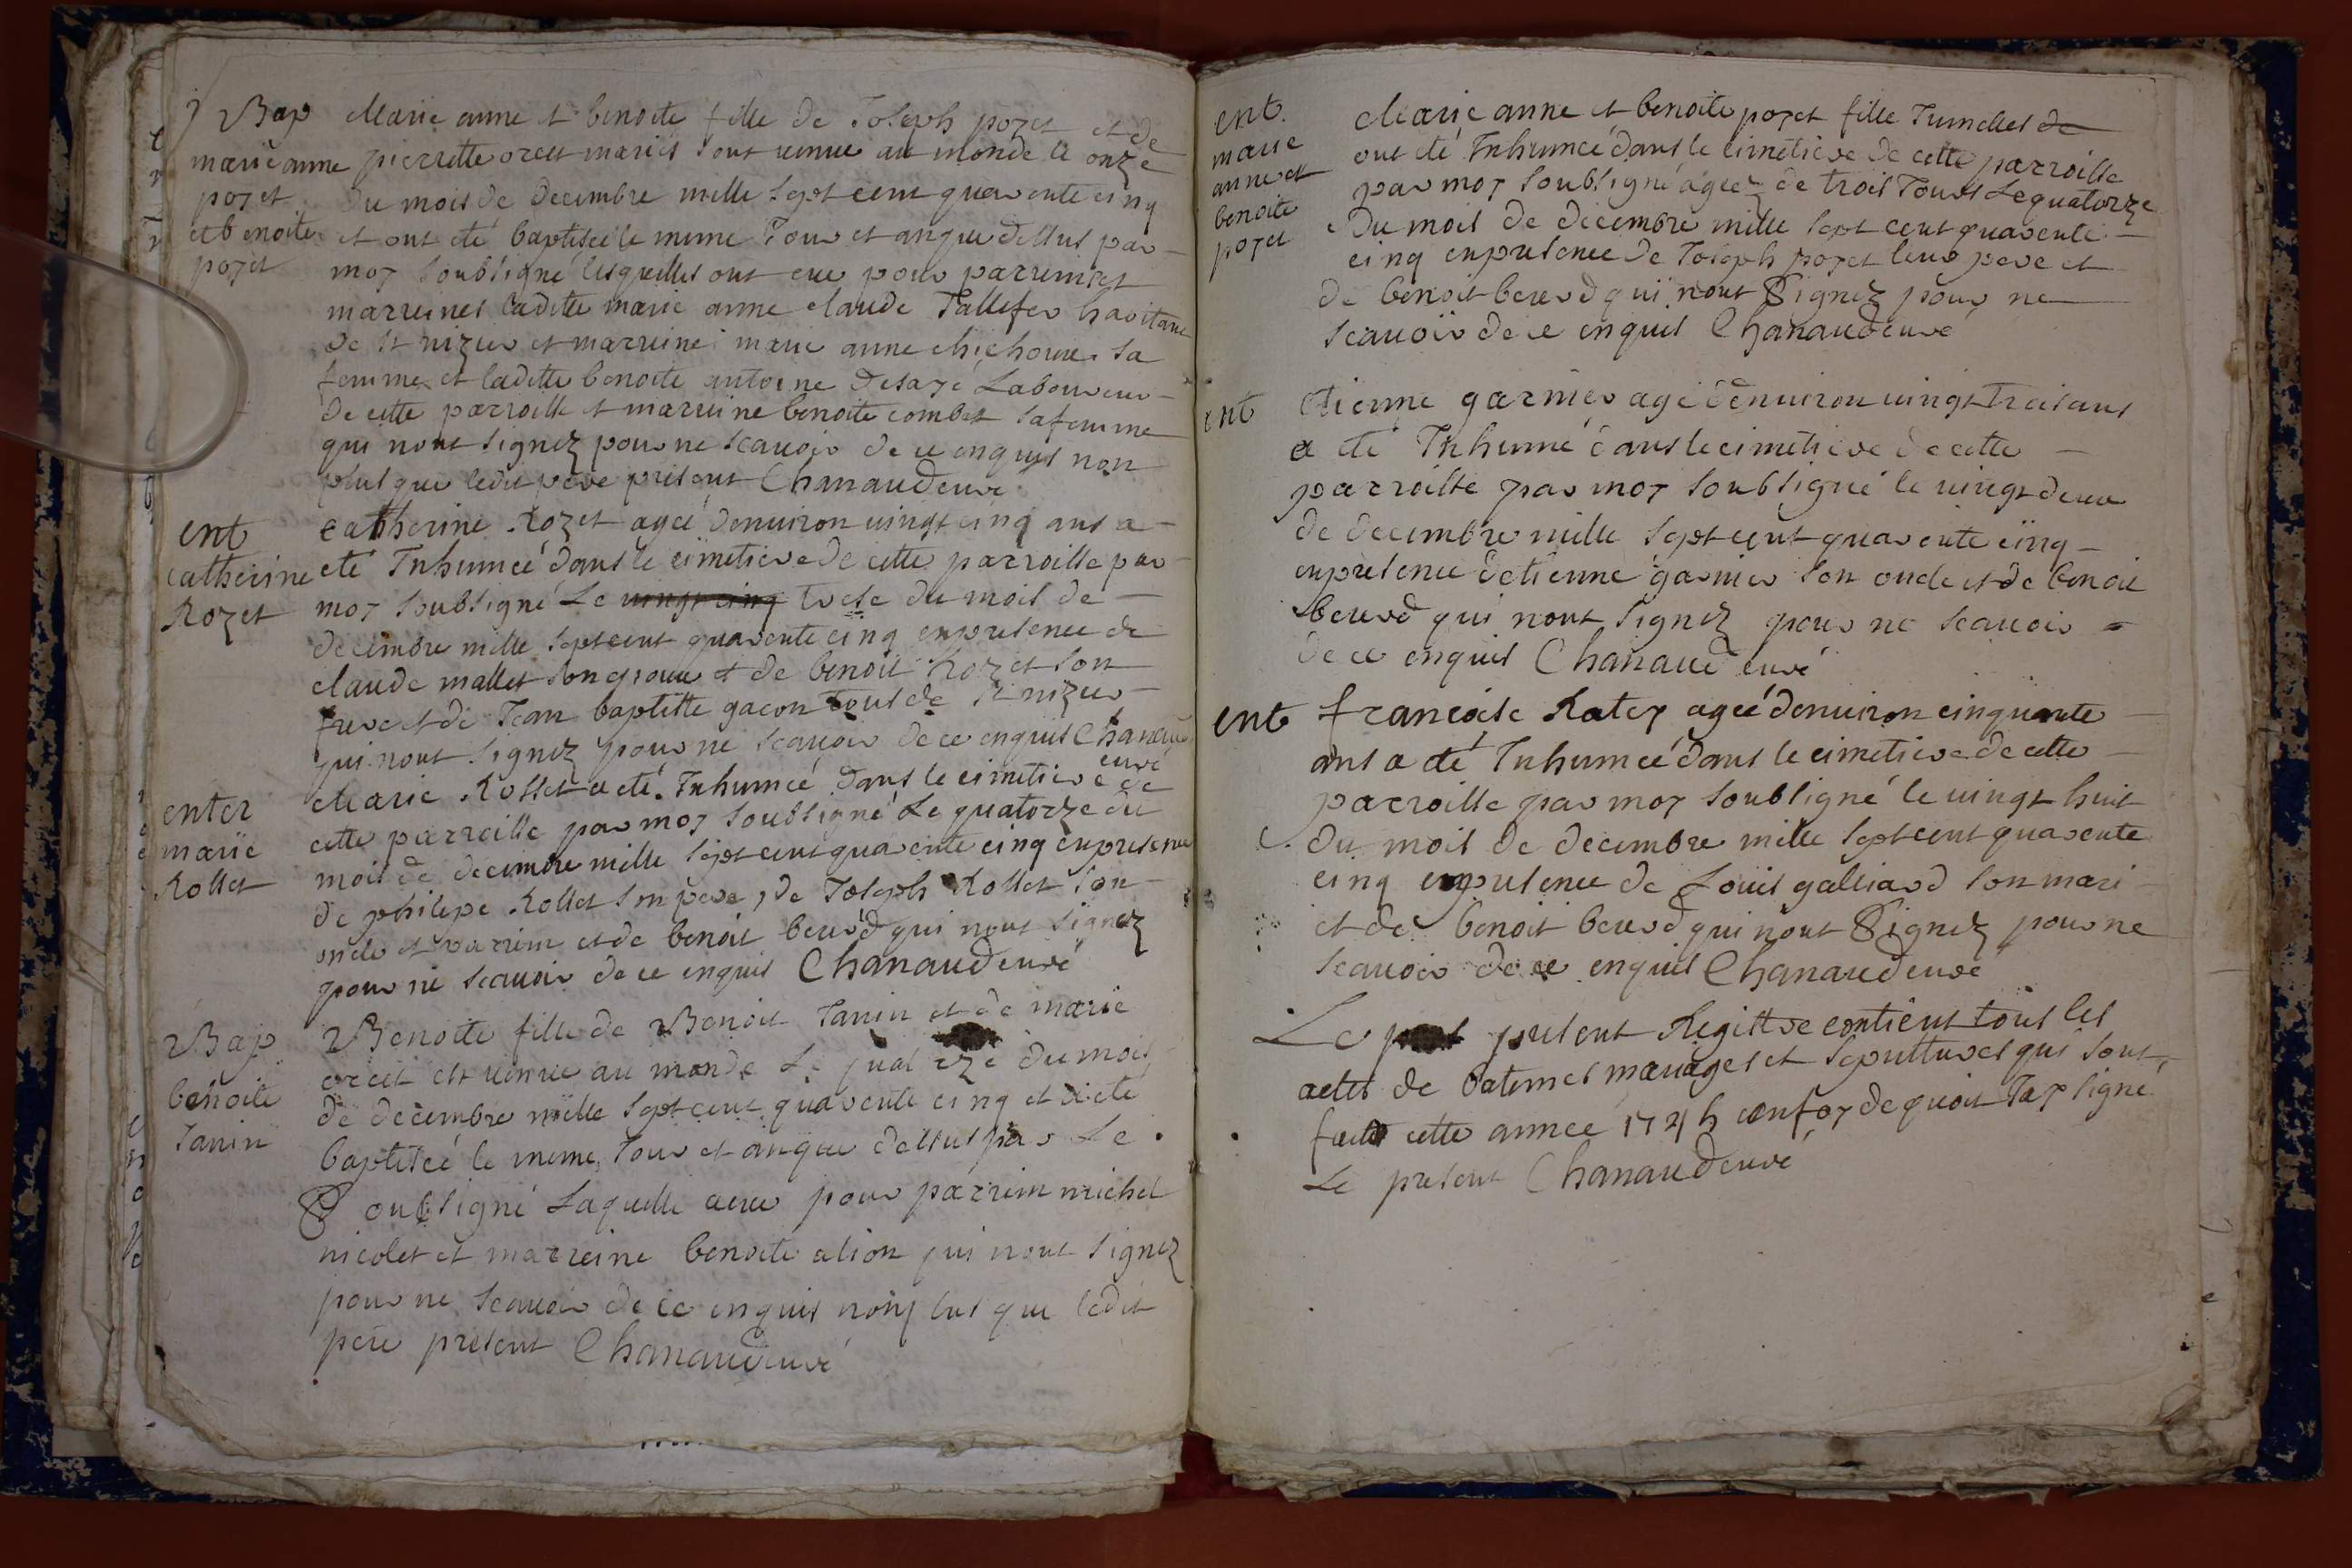 Bap
marie anne
pozet
et benoite
pozet
Marie anne et benoite fille de Joseph pozet et de
pierrette orcet mariés sont venue au monde le onze
du mois de decembre mille sept cent quarente cinq
et ont eté baptisée le meme Jour et an que dessus par
moy soubsigné lesquelles ont eue pour parreins et
marreines ladette marie anne claude Tallefer havitant
de st nizier et marreine marie anne chichoux sa
femme et ladette benoite antoine desazé Laboureur
de cette parroisse et marreine benoite combet sa femme
qui nont signez pour ne scauoir de ce enquis non
plus que ledit pere present Chanaud curé
ent
catherine
Rozet
catherine Rozet agée denuiron uingt cinq ans a
eté Inhumeé dans le cimetiere de cette parroisse par
moy soubsigné Le uingt cinq treise du mois de
decembre mille sept cent quarente cinq en presence de
claude mallet son epoux et de benoit Rozet son
frere et de Jean baptiste gacon tous de st nizier
qui nont signez pour ne scauoir de ce enquis Chanaud
curé
enter
marie
Rosset
Marie Rosset a eté Inhumeé dans le cimetiere de
cette parroisse par moy soubsigné Le quatorze du
mois de decembre mille sept cent quarente cinq en presence
de philipe Rosset son pere, de Joseph Rosset son
oncle et parrein et de benoit beurd qui nont signez
pour ne scauoir de ce enquis Chanaud curé
Bap
benoite
Janin
Benoite fille de Benoit Janin et de marie
orcet est venue au monde Le quatorze du mois
de decembre mille sept cent quarente cinq et a eté
baptiseé le meme Jour et an que dessus par Le
Soubsigné Laquelle a eue pour parrein michel
nicolet et marreine benoite alion qui nont signez
pour ne scauoir de ce enquis non plus que ledit
pere present Chanaud curé
ent.
marie
anne et
benoite
pozet
Marie anne et benoite pozet fille Jumelles de
ont eté Inhumeé dans le cimetiere de cette parroisse
par moy soubsigné ageez de trois Jours Le quatorze
du mois de decembre mille sept cent quarente
cinq en presence de Joseph pozet leur pere et
de benoit beurd qui nont Signez pour ne
scauoir de ce enquis Chanaud curé
ent
Etienne garnier agé denuiron uingt trois ans
a eté Inhumé dans le cimetiere de cette
parroisse par moy soubsigné le uingt deux
de decembre mille sept cent quarente cinq
en presence detienne garnier son oncle et de benoit
beurd qui nont signez pour ne scauoir
de ce enquis Chanaud curé
ent
francoise Ratey ageé denuiron cinquante
ans a eté Inhumeé dans le cimetiere de cette
parroisse par moy soubsigné le uingt huit
du mois de decembre mille sept cent quarente
cinq en presence de Louis galliard son mari
et de benoit beurd qui nont Signez pour ne
scauoir de ce enquis Chanaud curé
Le present Registre contient tous les
actes de batemes mariages et sepultures qui sont
faits cette année 1745 en foy de quoit Jay signé
Le present Chanaud curé